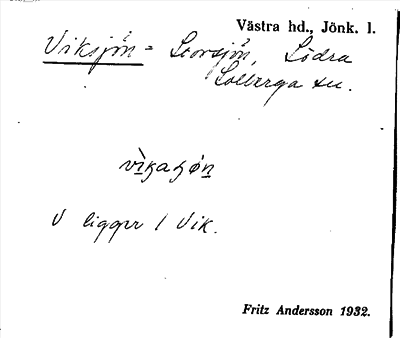 Västra hd., Jönk. l.
Viksjön = Storsjön, Södra
Solberga sn.
V ligger i Vik.
Fritz Andersson 1932.